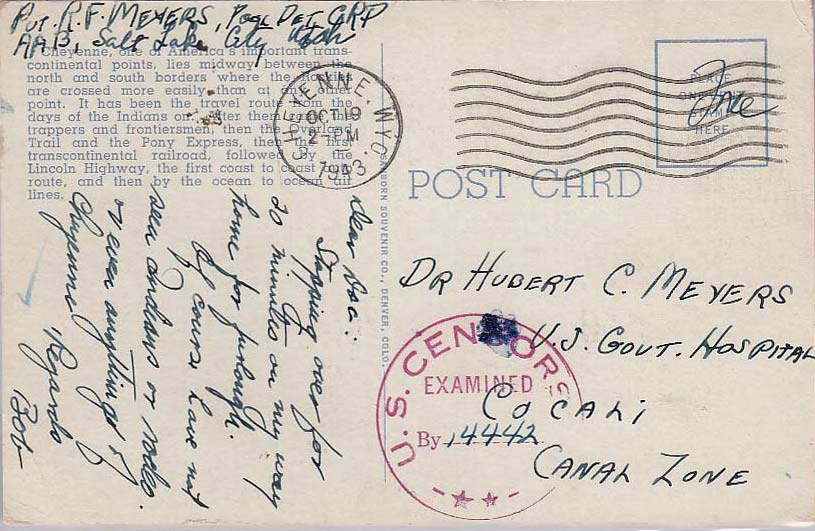 Pvt. R. F. MEYERS, Pool Det. GRP
AAB, Salt Lake City Utah
Cheyenne, one of America's important trans-
continental points, lies midway between the
north and south borders where the
are crossed more easily than at any other
point. It has been the travel route from the
days of the Indians on. After them came the
trappers and frontiersmen, then the Overland
Trail and the Pony Express, then the first
transcontinental railroad, followed by the
Lincoln Highway, the first coast to coast auto
route, and then by the ocean to ocean air
lines.
CHEYENNE, WYO.
OCT 19
2-PM
1943
PLACE
ONE
STAMP
HERE
Free
SANBORN SOUVENIR CO., DENVER, COLO.
POST CARD
Dear Doc:
Stopping over for
20 minutes on my way
home for furlough.
Of course have not
seen Indians or rodeo.
or even anything of
Cheyenne
Regards
Bob
DR HUBERT C. MEYERS
U.S. GOVT. HOSPITAL
COCALI
CANAL ZONE
U.S. CENSORS
EXAMINED
By 14442